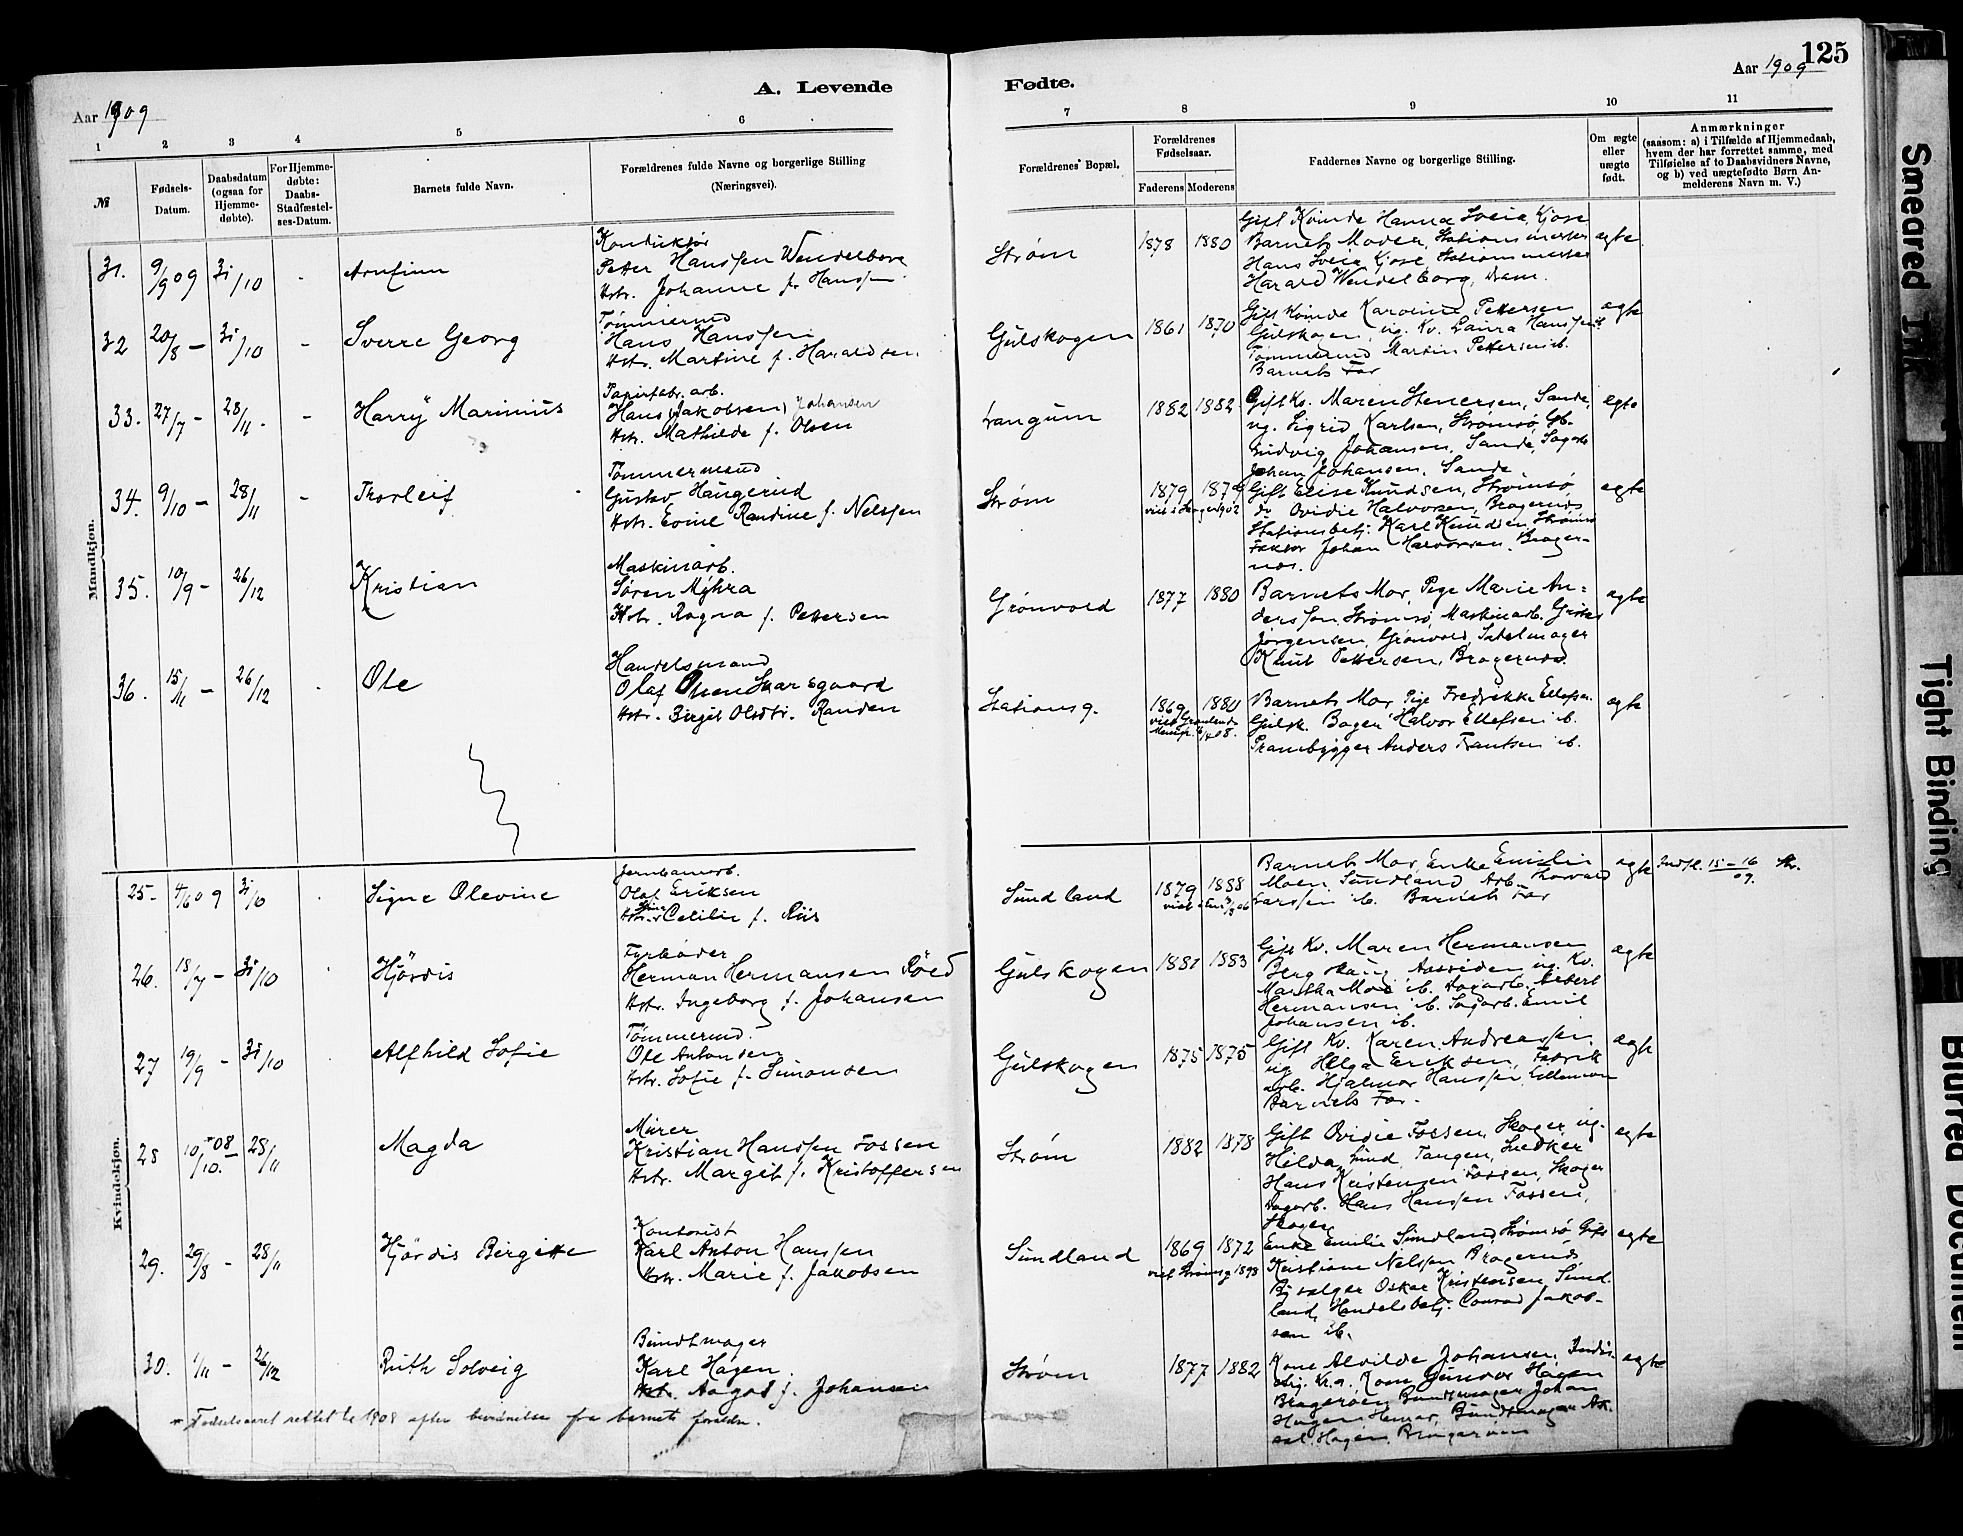 125
Aar 1909
A. Levende
Fødte.
Aar 1909
1 2 3 4 5 6 7 8 9 10 11
№
Fødsels-Datum.
Daabsdatum (ogsaa for Hjemme-døbte).
For Hjemme-døbte: Daabs-Stadfæstel-ses-Datum.
Barnets fulde Navn.
Forældrenes fulde Navne og borgerlige Stilling
(Næringsvei).
Forældrenes Bopæl.
Forældrenes Fødselsaar.
Faderens Moderens
Faddernes Navne og borgerlige Stilling.
Om ægte eller uægte født.
Anmærkninger
(saasom: a) i Tilfælde af Hjemmedaab,
hvem der har forrettet samme, med
Tilføielse af to Daabsvidners Navne,
og b) ved uægtefødte Børn An-
melderens Navn m. V.)
Mandkjøn.
31. 9/9 09 31/10 - Arnfinn
Konduktør
Petter Hanssen Wendelborg
Hstr. Johanne f. Hanssen
Strøm 1878 1880
Gift Kvinde Hanna Sveie, Kjose
Barnets Moder, Stationsmester
Hans Sveie Kjose Stationsmester
Harald Wendelborg, Dram.
ægte
32 20/8 - 31/10 - Sverre Georg
Tømmermd
Hans Hanssen
Hstr. Martine f. Haraldsen
Gulskogen 1861 1870
Gift Kvinde Karoline Pettersen
Gulskogen, ug. Kv. Laura Hanssen ib
Tømmermd Martin Pettersen ib.
Barnets Far
ægte
33. 27/7 - 28/11. - Harry Marinius
Papirfabr. arb.
Hans (Jakobsen) Johansen
Hstr. Mathilde f. Olsen
Langum 1882 1882
Gift Kv. Maren Stenersen, Sande,
ug. Sigrid Karlsen, Strømsø, Gb.
Ludvig Johansen, Sande, Sagarb
Johan Johansen, Sande
ægte
34. 9/10 - 28/11 - Thorleif
Tømmermand
Gustav Haugerud
Hstr. Emilie Randine f. Nelssen
Strøm 1879 1879
viet i Skoger 1902
Gift Elise Knudsen, Strømsø,
do Ovidie Halvorsen, Bragernes
Stationsbetj. Karl Knudsen, Strømsø
Faktor Johan Halvorsen, Brager-
nes.
ægte
35. 10/9 - 26/12 Kristian
Maskinarb.
Søren Myhra
Hstr. Ragna f. Pettersen
Grønvold 1877 1880
Barnets Mor, Pige Marie An-
derssen, Strømsø, Maskinarb.
Jørgensen, Grønvold, Sadelmager
Knut Pettersen, Bragernes.
ægte
36. 15/11 - 26/12 . Ole
Handelsmand
Olaf Olsen Skarsgaard
Hstr. Birgit Olsdtr. Randen
Stationsg. 1869 1880
Barnets Mor, Pige Fredrikke Ellefsen
Gulsk. Bager Halvor Ellefsen ib.
Prambygger Anders Frantsen ib.
ægte
Kvindekjøn.
25- 4/6 09 31/10 . Signe Olevine
Jernbanearb.
Olaf Eriksen
Hstr. Cecilie f. Riis
Sundland 1879 1888
Barnets Mor, Enke Emilie
Moen, Sundland Arb. Thorvald
Larssen ib. Barnets Far
ægte Indfl. 15-16/09.
26. 18/7 - 31/10 . Hjørdis
Fyrbøder
Herman Hermansen Röed
Hstr. Ingeborg f. Johansen
Gulskogen 1881 1883
Gift Kv. Maren Hermansen
Berg Skaug, Aassiden, ug. Kv.
Martha Moe ib. Dagarb. Albert
Hermansen ib. Sagarb. Emil
Johansen ib.
ægte
27 19/9 - 31/10 Alfhild Sofie
Tømmermd.
Ole Antonsen
Hstr. Sofie f. Simonsen
Gulskogen 1875 1875
Gift Kv. Karen Andreassen
ug Helga Eriksen, Fabrik
arb. Hjalmar Hanssen,
Barnets Far.
ægte
28 10/10. *08 28/11 Magda
Murer
Kristian Hanssen Fossen
Hstr. Margit f. Kristoffersen
Strøm 1882 1878
Gift Ovidie Fossen, Skoger, ug.
Hilda Lund, Tangen, Snedker
Hans Kristensen Fossen, Skoger
Dagarb. Hans Hanssen Fossen,
Skoger
ægte
29. 29/8 - 28/11 Hjördis Birgitte
Kontorist
Karl Anton Hanssen
Hstr. Marie f. Jakobsen
Sundland 1869 1872
viet Strømsø 1898
Enke Emilie Sundland, Strømsø, Gift
Kristiane Nelssen Bragernes
Bysælger Oskar Kristensen, Sund-
land, Handelsbetj. Conrad Jakob-
sen ib.
ægte
30. 1/11 - 26/12 Ruth Solveig
Bundtmager
Karl Hagen
Hstr. Aagot f. Johansen
Strøm 1877 1882
Kone Alvilde Johansen,
Kr.a. Kone Gunvor Hagen
Bragerøen Bundtmager Johan
Hagen Hamar, Bundtmager Ak-
sel Hagen, Bragerøen
ægte
* Fødselsaaret rettet til 1908 efter bevidnelse fra barnets forældre.
Smeared Ink
Tight Binding
Blurred Document